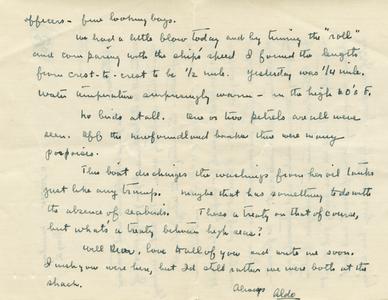 officers - fine looking boys.
We had a little blow today and by timing the "roll"
and comparing with the ship's speed I found the length
from crest-to-crest to be 1/2 mile. Yesterday was 1/4 mile.
Water temperature surprisingly warm - in the high 60's F.
No birds at all. One or two petrels are all we've
seen. Off the Newfoundland banks there were many
porpoises.
This boat discharges the washings from her oil tanks
just like any tramp. Maybe that has something to do with
the absence of seabirds. There's a treaty on that of course,
but what's a treaty between high seas?
Well dear, love to all of you and write me soon.
I wish you were here, but I'd still rather we were both at the
shack.
Always Aldo